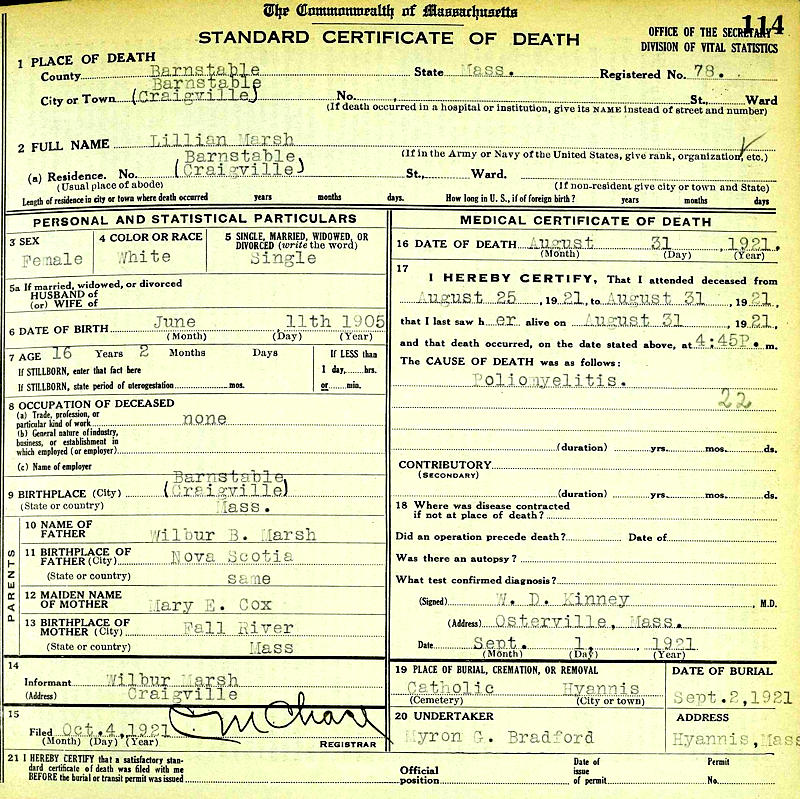 The Commonwealth of Massachusetts
114
STANDARD CERTIFICATE OF DEATH
OFFICE OF THE SECRETARY
DIVISION OF VITAL STATISTICS
1 PLACE OF DEATH
County Barnstable State Mass. Registered No. 78.
Barnstable
City or Town (Craigville) No. , St., Ward
(If death occurred in a hospital or institution, give its NAME instead of street and number)
2 FULL NAME Lillian Marsh
(If in the Army or Navy of the United States, give rank, organization, etc.)
Barnstable
(a) Residence. No. (Craigville) St., Ward.
(Usual place of abode) (If non-resident give city or town and State)
Length of residence in city or town where death occurred years months days. How long in U. S., if of foreign birth? years months days
PERSONAL AND STATISTICAL PARTICULARS
3 SEX 4 COLOR OR RACE 5 SINGLE, MARRIED, WIDOWED, OR
DIVORCED (write the word)
Female White Single
5a If married, widowed, or divorced
HUSBAND of
(or) WIFE of
6 DATE OF BIRTH June 11th 1905
(Month) (Day) (Year)
7 AGE 16 Years 2 Months Days If LESS than
If STILLBORN, enter that fact here 1 day, hrs.
If STILLBORN, state period of uterogestation mos. or min.
8 OCCUPATION OF DECEASED
(a) Trade, profession, or
particular kind of work none
(b) General nature of industry,
business, or establishment in
which employed (or employer)
(c) Name of employer
Barnstable
9 BIRTHPLACE (City) (Craigville)
(State or country) Mass.
PARENTS
10 NAME OF
FATHER Wilbur B. Marsh
11 BIRTHPLACE OF
FATHER (City) Nova Scotia
(State or country) same
12 MAIDEN NAME
OF MOTHER Mary E. Cox
13 BIRTHPLACE OF
MOTHER (City) Fall River
(State or country) Mass
14
Informant Wilbur Marsh
(Address) Craigville
15
Filed Oct.4,1921
(Month) (Day) (Year) REGISTRAR
MEDICAL CERTIFICATE OF DEATH
16 DATE OF DEATH August 31 , 1921.
(Month) (Day) (Year)
17
I HEREBY CERTIFY, That I attended deceased from
August 25 , 1921, to August 31 , 1921,
that I last saw her alive on August 31 , 1921,
and that death occurred, on the date stated above, at 4:45P. m.
The CAUSE OF DEATH was as follows:
Poliomyelitis.
22
(duration) yrs. mos. ds.
CONTRIBUTORY
(SECONDARY)
(duration) yrs. mos. ds.
18 Where was disease contracted
if not at place of death?
Did an operation precede death? Date of
Was there an autopsy?
What test confirmed diagnosis?
(Signed) W. D. Kinney , M.D.
(Address) Osterville, Mass.
Date Sept. 1, , 1921
(Month) (Day) (Year)
19 PLACE OF BURIAL, CREMATION, OR REMOVAL DATE OF BURIAL
Catholic Hyannis Sept.2,1921
(Cemetery) (City or town)
20 UNDERTAKER ADDRESS
Myron G. Bradford Hyannis,Mass
21 I HEREBY CERTIFY that a satisfactory stan-
dard certificate of death was filed with me
BEFORE the burial or transit permit was issued
Official
position
Date of
issue
of permit
Permit
No.